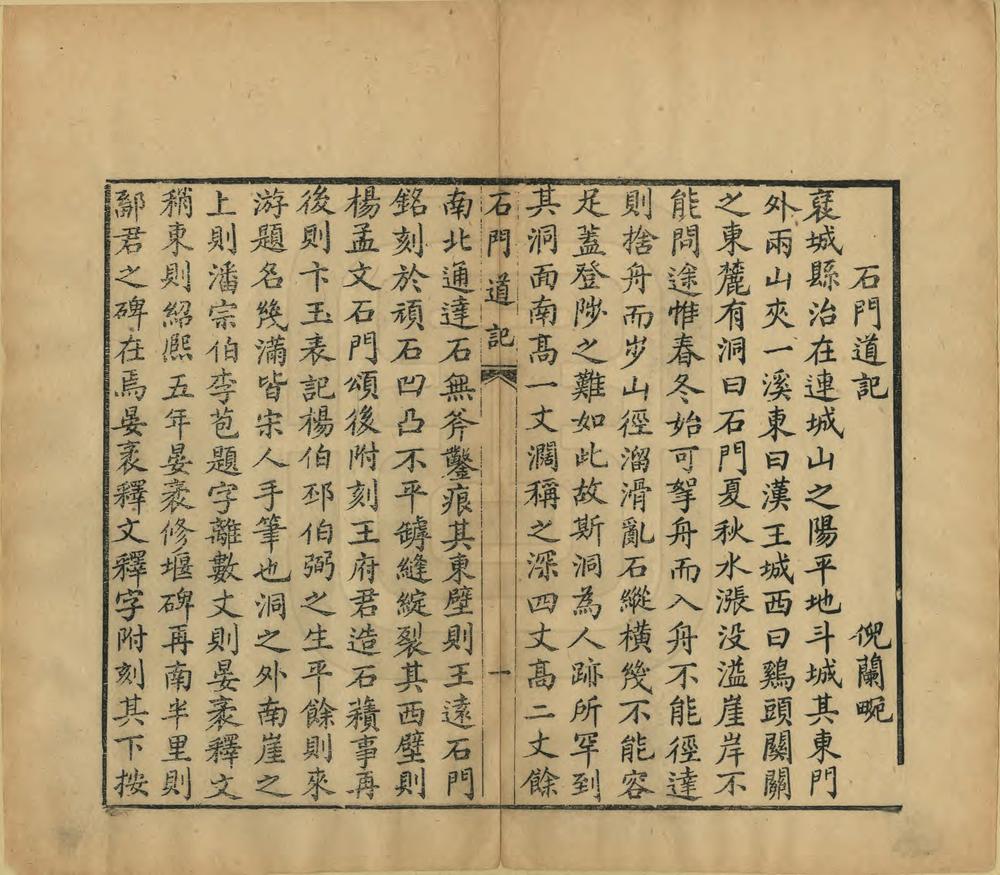 石門道記　倪蘭畹
襃城縣治在連城山之陽平地斗城其東門
外兩山夾一溪東曰漢王城西曰鷄頭關關
之東麓有洞曰石門夏秋水漲没溢崖岸不
能問途惟春冬始可拏舟而入舟不能徑達
則捨舟而步山徑溜滑亂石縱横幾不能容
足蓋登陟之難如此故斯洞為人跡所罕到
其洞面南高一丈濶稱之深四丈高二丈餘
石門道記　一
南北通達石無斧鑿痕其東壁則王遠石門
銘刻於頑石凹凸不平罅縫綻裂其西壁則
楊孟文石門頌後附刻王府君造石積事再
後則卞玉表記楊伯邳伯弼之生平餘則來
游題名幾滿皆宋人手筆也洞之外南崖之
上則潘宗伯李苞題字離數丈則晏袤釋文
稍東則紹熙五年晏袤修堰碑再南半里則
鄐君之碑在焉晏袤釋文釋字附刻其下按